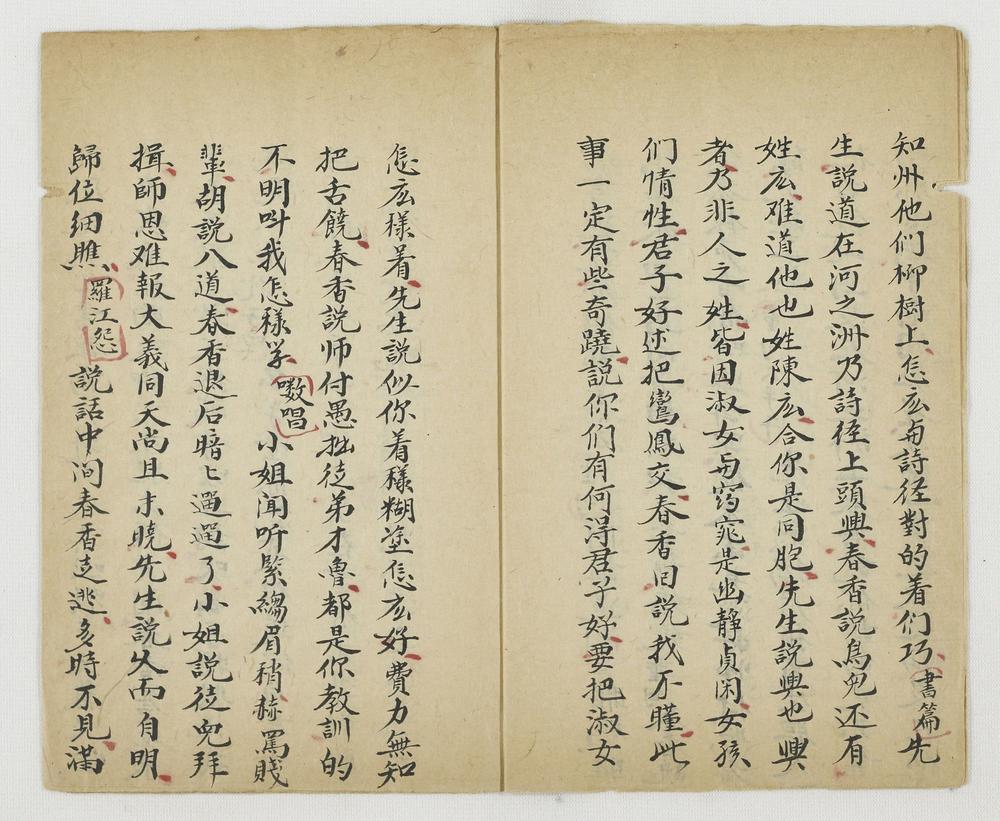 知州他们柳樹上怎庅与詩径對的着们巧書篇先
生説道在河之洲乃詩径上頭興春香説鳥児还有
姓庅难道他也姓陳庅合你是同胞先生説興也興
者乃非人之姓皆因淑女与窈窕是幽静貞闲女孩
们情性君子好逑把鸞鳳交春香曰説我不瞳此
事一定有些奇蹺説你们有何淂君子好要把淑女
怎庅樣着先生説似你着樣糊塗怎庅好費力無知
把舌饒春香説师付愚拙徒弟才魯都是你教訓的
不明呌我怎様学嗷唱小姐闻听緊縐眉稍赫罵賤
輩胡説八道春香退后暗匕逥遛了小姐説徒児拜
揖師恩难報大義同天尚且未曉先生説久而自明
歸位细瞧羅江怨説話中涧春香走逃多時不見滿